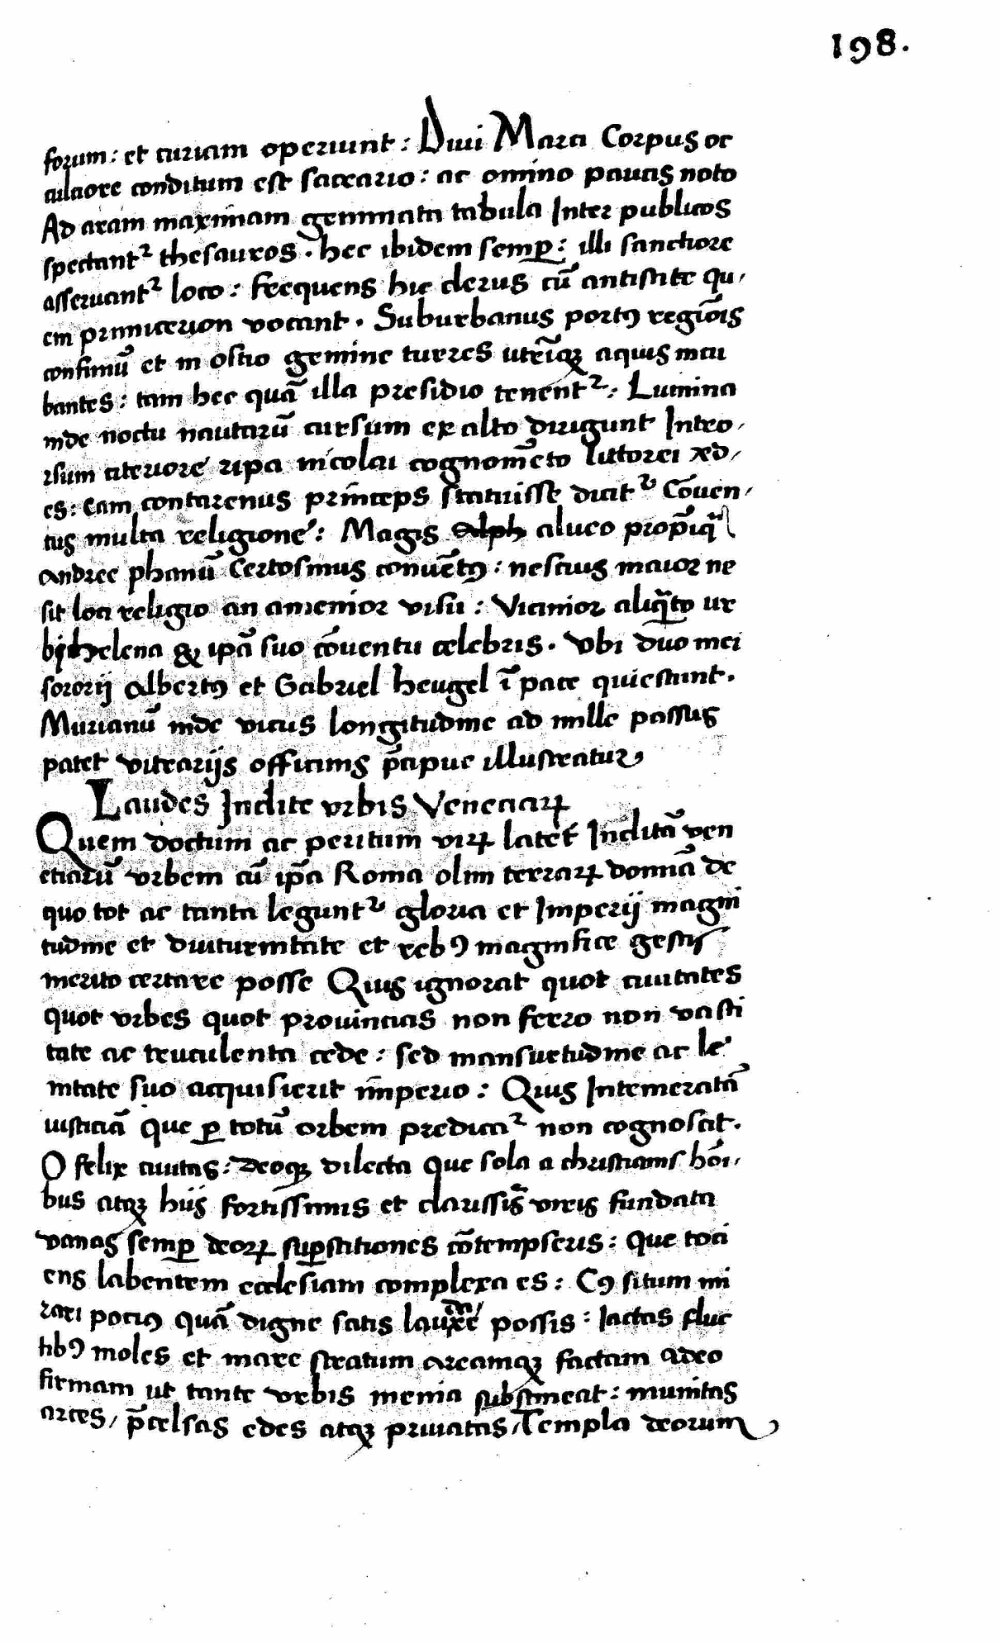 198.
forum: et curiam operiunt: Diui Marci Corpus oc
culciore conditum est saccario: ac omino paucis noto
Ad aram maximam gemmata tabula Inter publicos
spectantꝛ thesauros. hec ibidem semꝑ: illi sanctiore
asseruantꝛ loco: Frequens hic clerus cū antistite qu,
em primicerion vocant. Suburbanus portꝰ regiōis
confiniū et in ostio gemine turres utrīqꝫ aquis incu
bantes: tam hec quā illa presidio tenentꝛ: Lumina
inde noctu nautarū cursum ex alto dirigunt Intro,
rsum citeriore ripa nicolai cognomēto littorei æd,
es: Eam contarenus prīnceps statuisse dicitꝛ Cōuen,
tus multa religione: Magis alph alueo prop̄iq̄
Andree phanū Certosinus conuētꝰ: nescius maior ne
sit loci religio an amenior visu: Vicinior aliq̄to ur
bi helena & ip̄a suo cōuentu celebris. Vbi duo mei
sororij Albertꝰ et Gabriel heugel ī pace quiescunt.
Murianū inde vicus longitudine ad mille passus
patet vitrarijs officinis p̄cipue illustratur,
Laudes Inclite vrbis Veneciaꝝ
Quem doctum ac peritum viꝝ latet Inclitā ven
etiarū vrbem cū ip̄a Roma olim terraꝝ domīa de
quo tot ac tanta leguntꝛ gloria et Imperij magni
tudine et diuturnitate et rebꝰ magnifice gestis
merito certare posse Quis ignorat quot ciuitates
quot vrbes quot prouincias non ferro non vasti
tate ac truculenta cede: sed mansuetudine ac le
nitate suo acquisierit īmperio: Quis Intemeratā
iusticiā que ꝑ totū orbem predicaꝛ non cognoscit.
O felix ciuitas: deoqꝫ dilecta que sola a christianis hōi,
bus atqꝫ hijs fortissimis et clarissīs viris fundata
vanas semꝑ deoꝝ suꝑstitiones cōtempseris: que toci
ens labentem ecclesiam complexa es: Cꝰ situm mi
rari pociꝰ quā digne satis laudare possis: Iactas fluc
tibꝰ moles et mare stratum areamqꝫ factam adeo
firmam ut tante vrbis menia substineat: munitas
arces, p̄celsas edes atqꝫ priuatas, Templa deorum